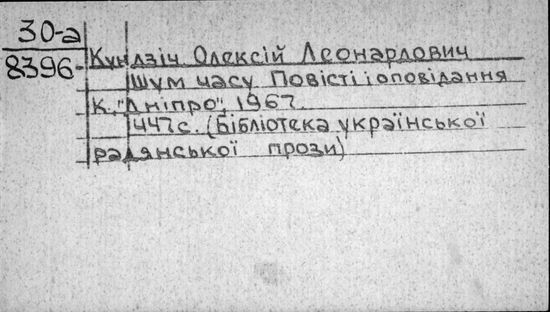 30-а
8396-
Кундзіч Олексій Леонардович
Шум часу Повісті і оповідання
К. "Дніпро", 1967.
447с. (Бібліотека української
радянської прози)